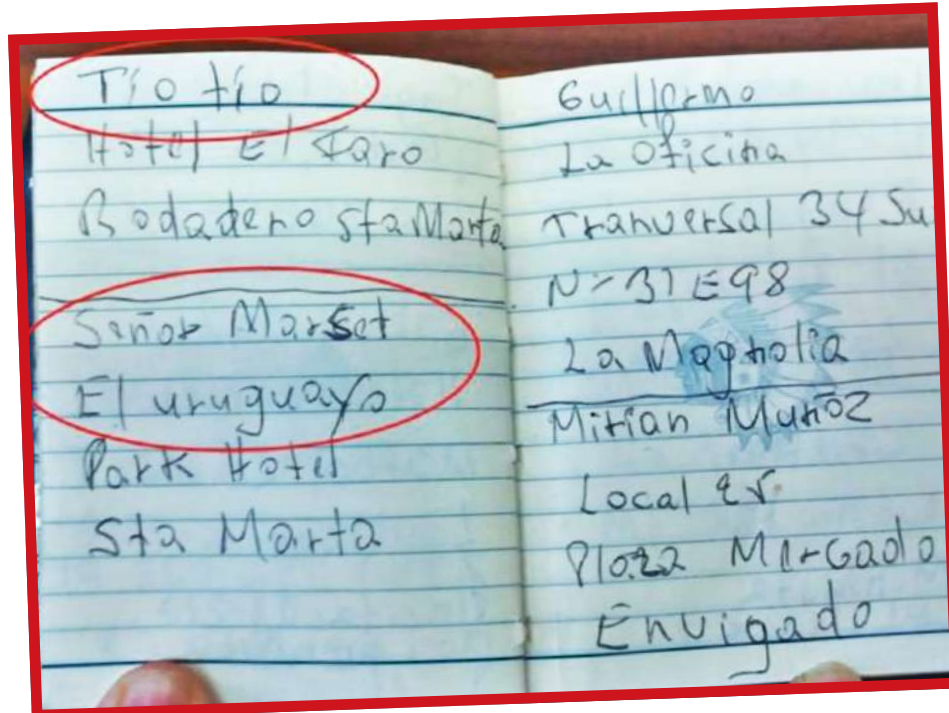 Tío tío
Hotel El Faro
Rodadero Sta Marta
Señor Marset
El uruguayo
Park Hotel
Sta Marta
Guillermo
La Oficina
Tranversal 34 Su
N= 31 E 98
La Magnolia
Mirian Muñoz
Local
Plaza Mercado
Envigado